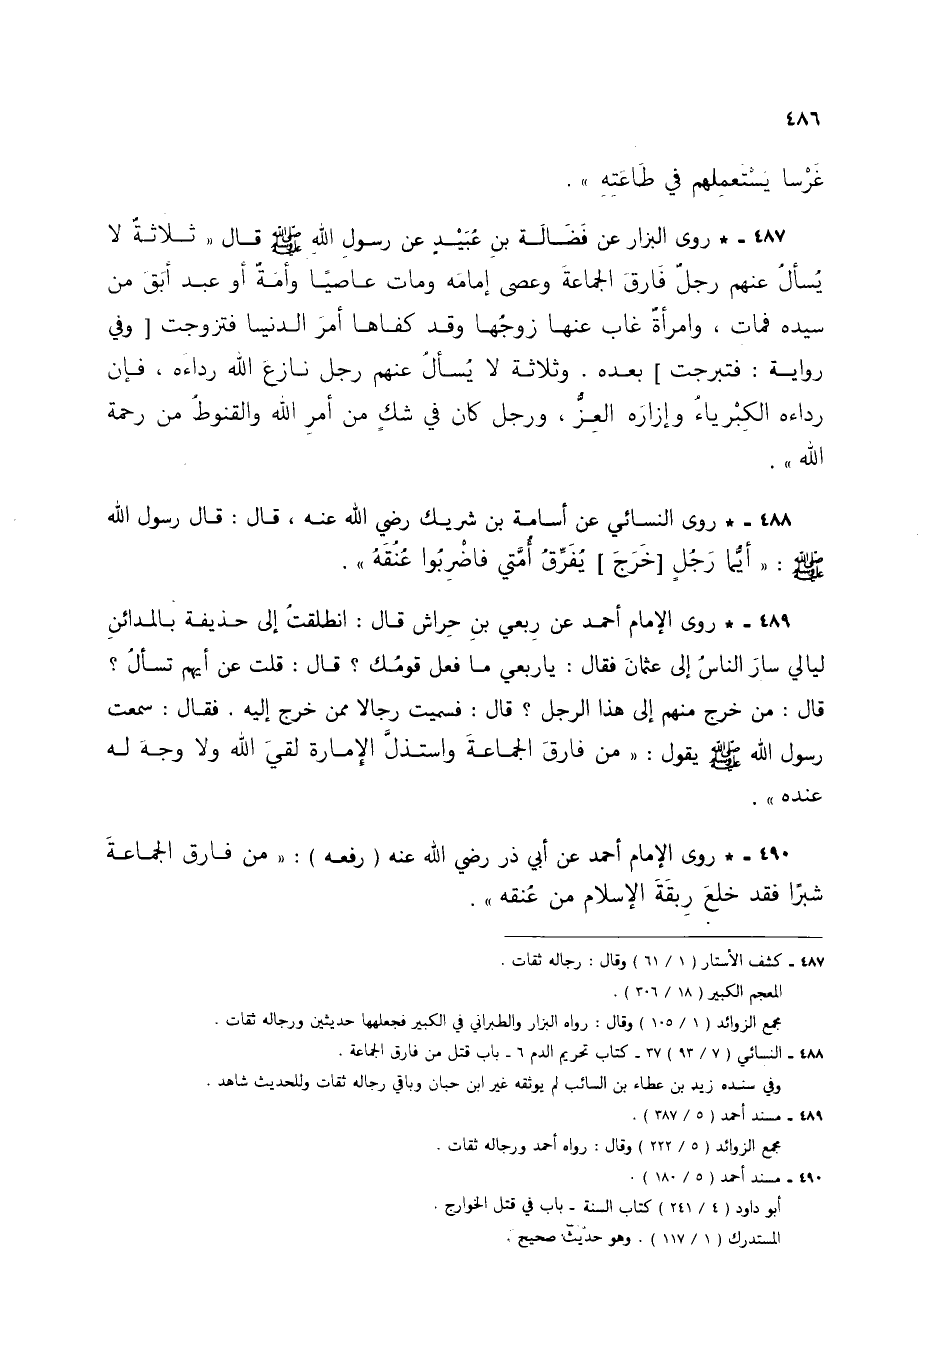 ٤٨٦
غَرْسا يَسْتَعمِلهم في طَاعَتِهِ » .
٤٨٧ ـ * روى البزار عن فَضَالَة بن عُبَيْدٍ عن رسول اللهِ ﷺ قال « ثلاثةٌ لا
يُسألُ عنهم رجلٌ فَارقَ الجماعةَ وعصى إمامَه ومات عاصيًا وأمَةٌ أو عبد أبَقَ من
سيده فمات ، وامرأةٌ غاب عنها زوجُها وقد كفاها أمرَ الدنيا فتزوجت [ وفي
رواية : فتبرجت ] بعده . وثلاثة لا يُسألُ عنهم رجل نازعَ اللهَ رداءه ، فإن
رداءه الكِبْرياءُ وإزارَه العِزُّ ، ورجل كان في شكٍ من أمرِ اللهِ والقنوطُ من رحمة
الله » .
٤٨٨ ـ * روى النسائي عن أسامة بن شريك رضي الله عنه ، قال : قال رسول الله
ﷺ : « أيُّما رَجُلٍ [خَرَجَ ] يُفَرِّقُ أُمَّتي فاضْرِبُوا عُنُقَهُ » .
٤٨٩ ـ * روى الإمام أحمد عن ربعي بن حِراش قال : انطلقتُ إلى حذيفة بالمدائنِ
ليالي سارَ الناسُ إلى عثمانَ فقال : ياربعي ما فعل قومُك ؟ قال : قلت عن أيهم تسألُ ؟
قال : من خرج منهم إلى هذا الرجل ؟ قال : فسميت رجالا ممن خرج إليه . فقال : سمعت
رسول الله ﷺ يقول : « من فارقَ الجماعةَ واستذلَّ الإمارة لقيَ الله ولا وجهَ له
عنده » .
٤٩٠ ـ * روى الإمام أحمد عن أبي ذر رضي الله عنه ( رفعه ) : « من فارق الجماعةَ
شبرًا فقد خلعَ رِبقَةَ الإسلام من عُنقه » .
٤٨٧ ـ كشف الأستار ( ١ / ٦١ ) وقال : رجاله ثقات .
المعجم الكبير ( ١٨ / ٣٠٦ ) .
مجمع الزوائد ( ١ / ١٠٥ ) وقال : رواه البزار والطبراني في الكبير فجعلهما حديثين ورجاله ثقات .
٤٨٨ ـ النسائي ( ٧ / ٩٣ ) ٣٧ ـ كتاب تحريم الدم ٦ ـ باب قتل من فارق الجماعة .
وفي سنده زيد بن عطاء بن السائب لم يوثقه غير ابن حبان وباقي رجاله ثقات وللحديث شاهد .
٤٨٩ ـ مسند أحمد ( ٥ / ٣٨٧ ) .
مجمع الزوائد ( ٥ / ٢٢٢ ) وقال : رواه أحمد ورجاله ثقات .
٤٩٠ ـ مسند أحمد ( ٥ / ١٨٠ ) .
أبو داود ( ٤ / ٢٤١ ) كتاب السنة ـ باب في قتل الخوارج .
المستدرك ( ١ / ١١٧ ) . وهو حديث صحيح .